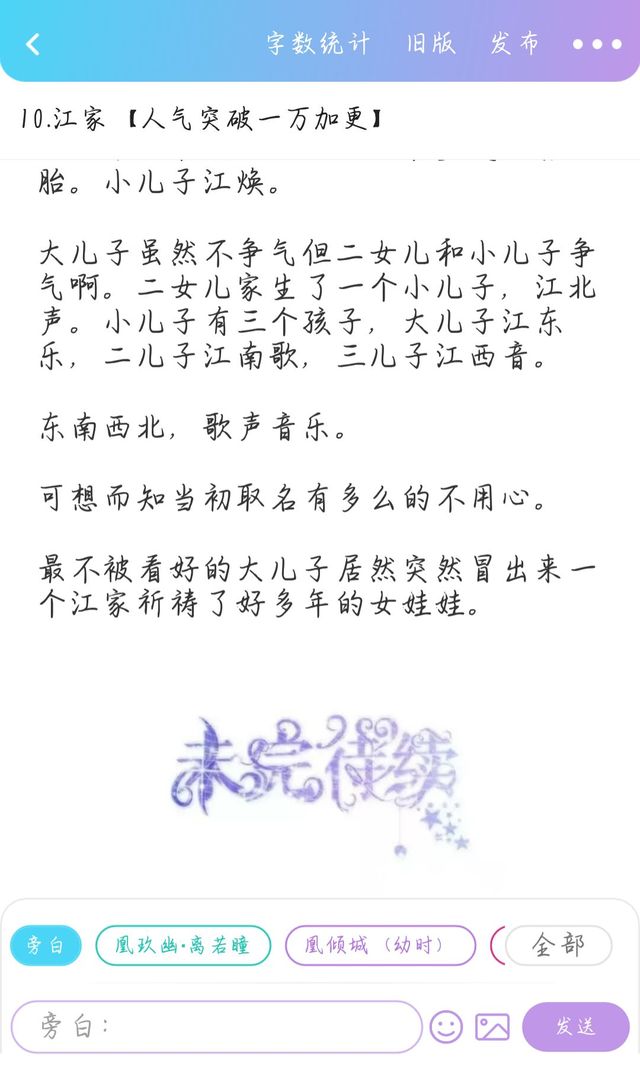 字数统计 旧版 发布
10.江家【人气突破一万加更】
胎。小儿子江焕。
大儿子虽然不争气但二女儿和小儿子争
气啊。二女儿家生了一个小儿子，江北
声。小儿子有三个孩子，大儿子江东
乐，二儿子江南歌，三儿子江西音。
东南西北，歌声音乐。
可想而知当初取名有多么的不用心。
最不被看好的大儿子居然突然冒出来一
个江家祈祷了好多年的女娃娃。
未完待续
旁白 凰玖幽·离若瞳 凰倾城（幼时） 全部
旁白： 发送